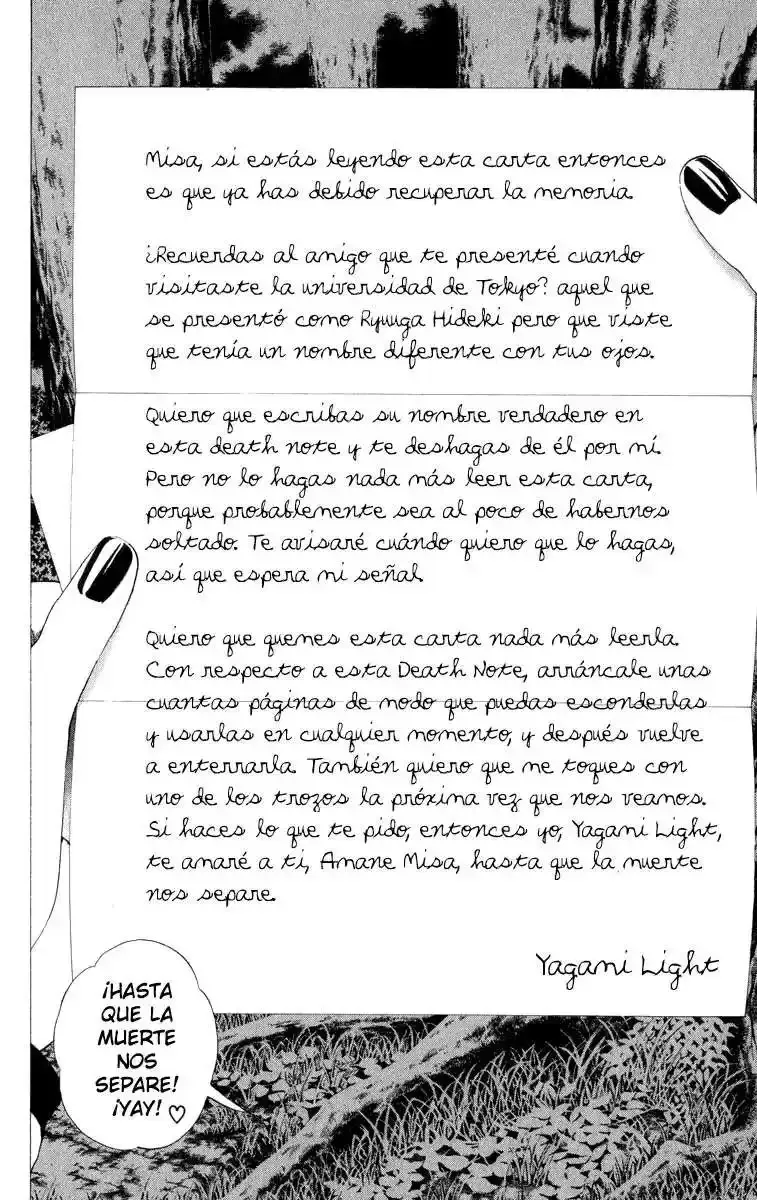 Misa, si estás leyendo esta carta entonces
es que ya has debido recuperar la memoria.
¿Recuerdas al amigo que te presenté cuando
visitaste la universidad de Tokyo? aquel que
se presentó como Ryuuga Hideki pero que viste
que tenía un nombre diferente con tus ojos.
Quiero que escribas su nombre verdadero en
esta death note y te deshagas de él por mí.
Pero no lo hagas nada más leer esta carta,
porque probablemente sea al poco de habernos
soltado. Te avisaré cuándo quiero que lo hagas,
así que espera mi señal.
Quiero que quemes esta carta nada más leerla.
Con respecto a esta Death Note, arráncale unas
cuantas páginas de modo que puedas esconderlas
y usarlas en cualquier momento, y después vuelve
a enterrarla. También quiero que me toques con
uno de los trozos la próxima vez que nos veamos.
Si haces lo que te pido, entonces yo, Yagami Light,
te amaré a ti, Amane Misa, hasta que la muerte
nos separe.
Yagami Light
¡HASTA
QUE LA
MUERTE
NOS
SEPARE!
¡YAY! ♡